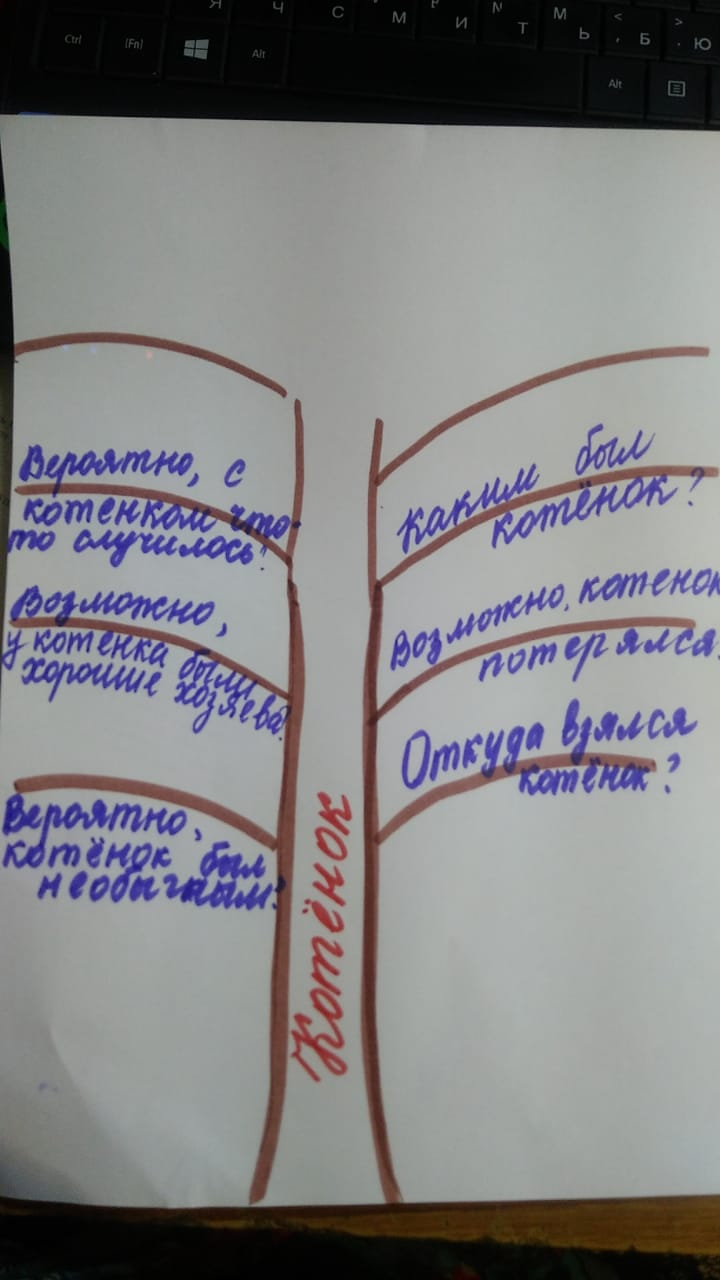 Я Ч С М И Т Ь Б Ю
Ctrl (Fn) Alt Alt
Вероятно, с
котенком что-
то случилось!
Возможно,
у котенка были
хорошие хозяева!
Вероятно,
котёнок был
необычным?
Котёнок
Каким был
котёнок?
Возможно, котенок
потерялся.
Откуда взялся
котёнок?